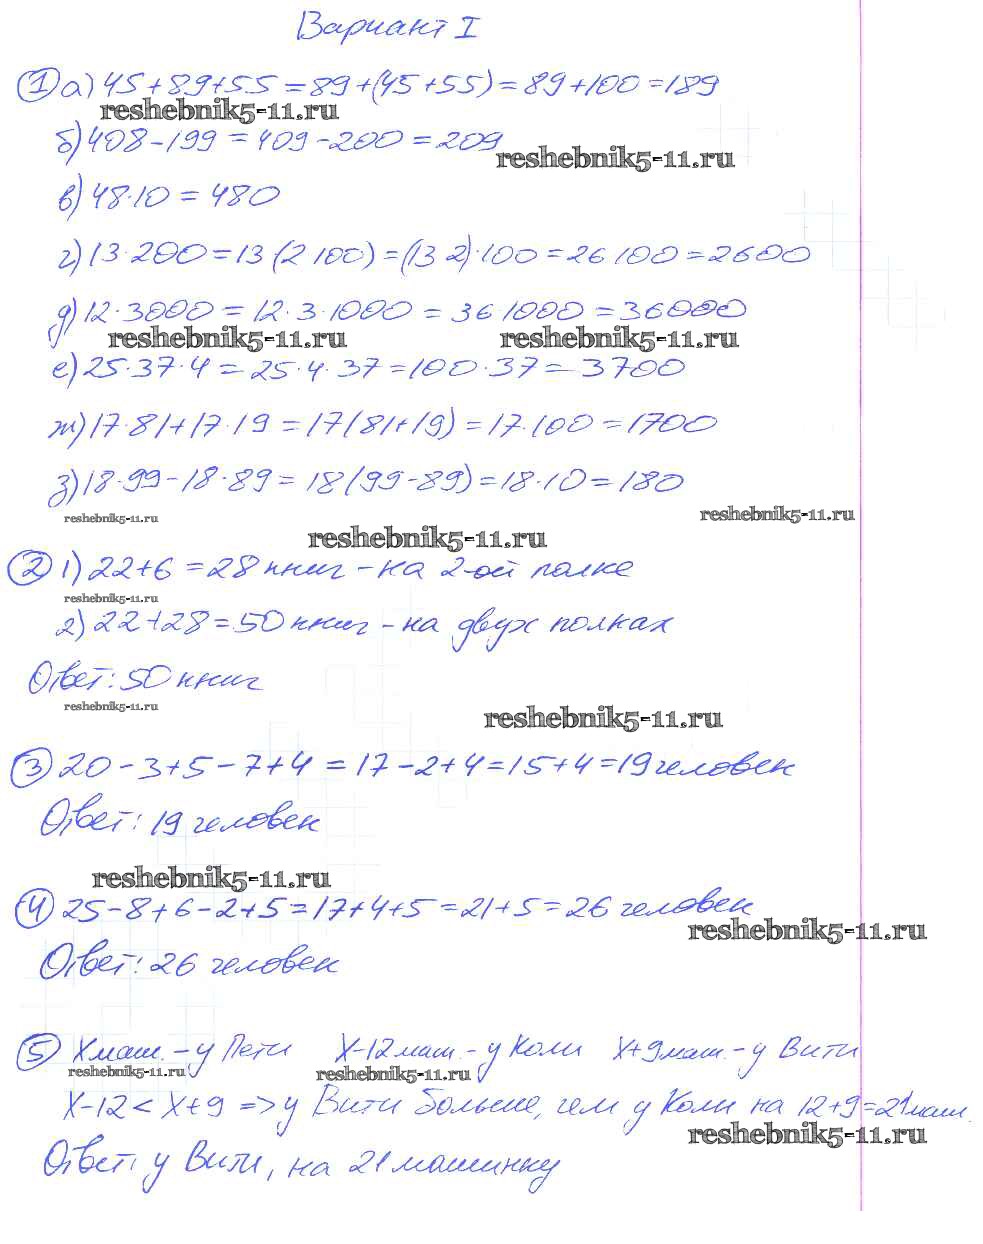 Вариант I
① а) 45+89+55=89+(45+55)=89+100=189
reshebnik5-11.ru
б) 408-199=409-200=209
reshebnik5-11.ru
в) 48·10=480
г) 13·200=13(2 100)=(13 2)·100=26 100=2600
д) 12·3000=12·3·1000=36 1000=36000
reshebnik5-11.ru reshebnik5-11.ru
е) 25·37·4=25·4·37=100·37=3700
ж) 17·81+17·19=17(81+19)=17·100=1700
з) 18·99-18·89=18(99-89)=18·10=180
reshebnik5-11.ru reshebnik5-11.ru
reshebnik5-11.ru
② 1) 22+6=28 книг - на 2-ой полке
reshebnik5-11.ru
2) 22+28=50 книг - на двух полках
Ответ: 50 книг
reshebnik5-11.ru
reshebnik5-11.ru
③ 20-3+5-7+4=17-2+4=15+4=19 человек
Ответ: 19 человек
reshebnik5-11.ru
④ 25-8+6-2+5=17+4+5=21+5=26 человек
reshebnik5-11.ru
Ответ: 26 человек
⑤ X маш. - у Пети X-12 маш. - у Коли X+9 маш. - у Вити
reshebnik5-11.ru reshebnik5-11.ru
X-12<X+9 => у Вити больше, чем у Коли на 12+9=21 маш.
reshebnik5-11.ru
Ответ: у Вити, на 21 машинку